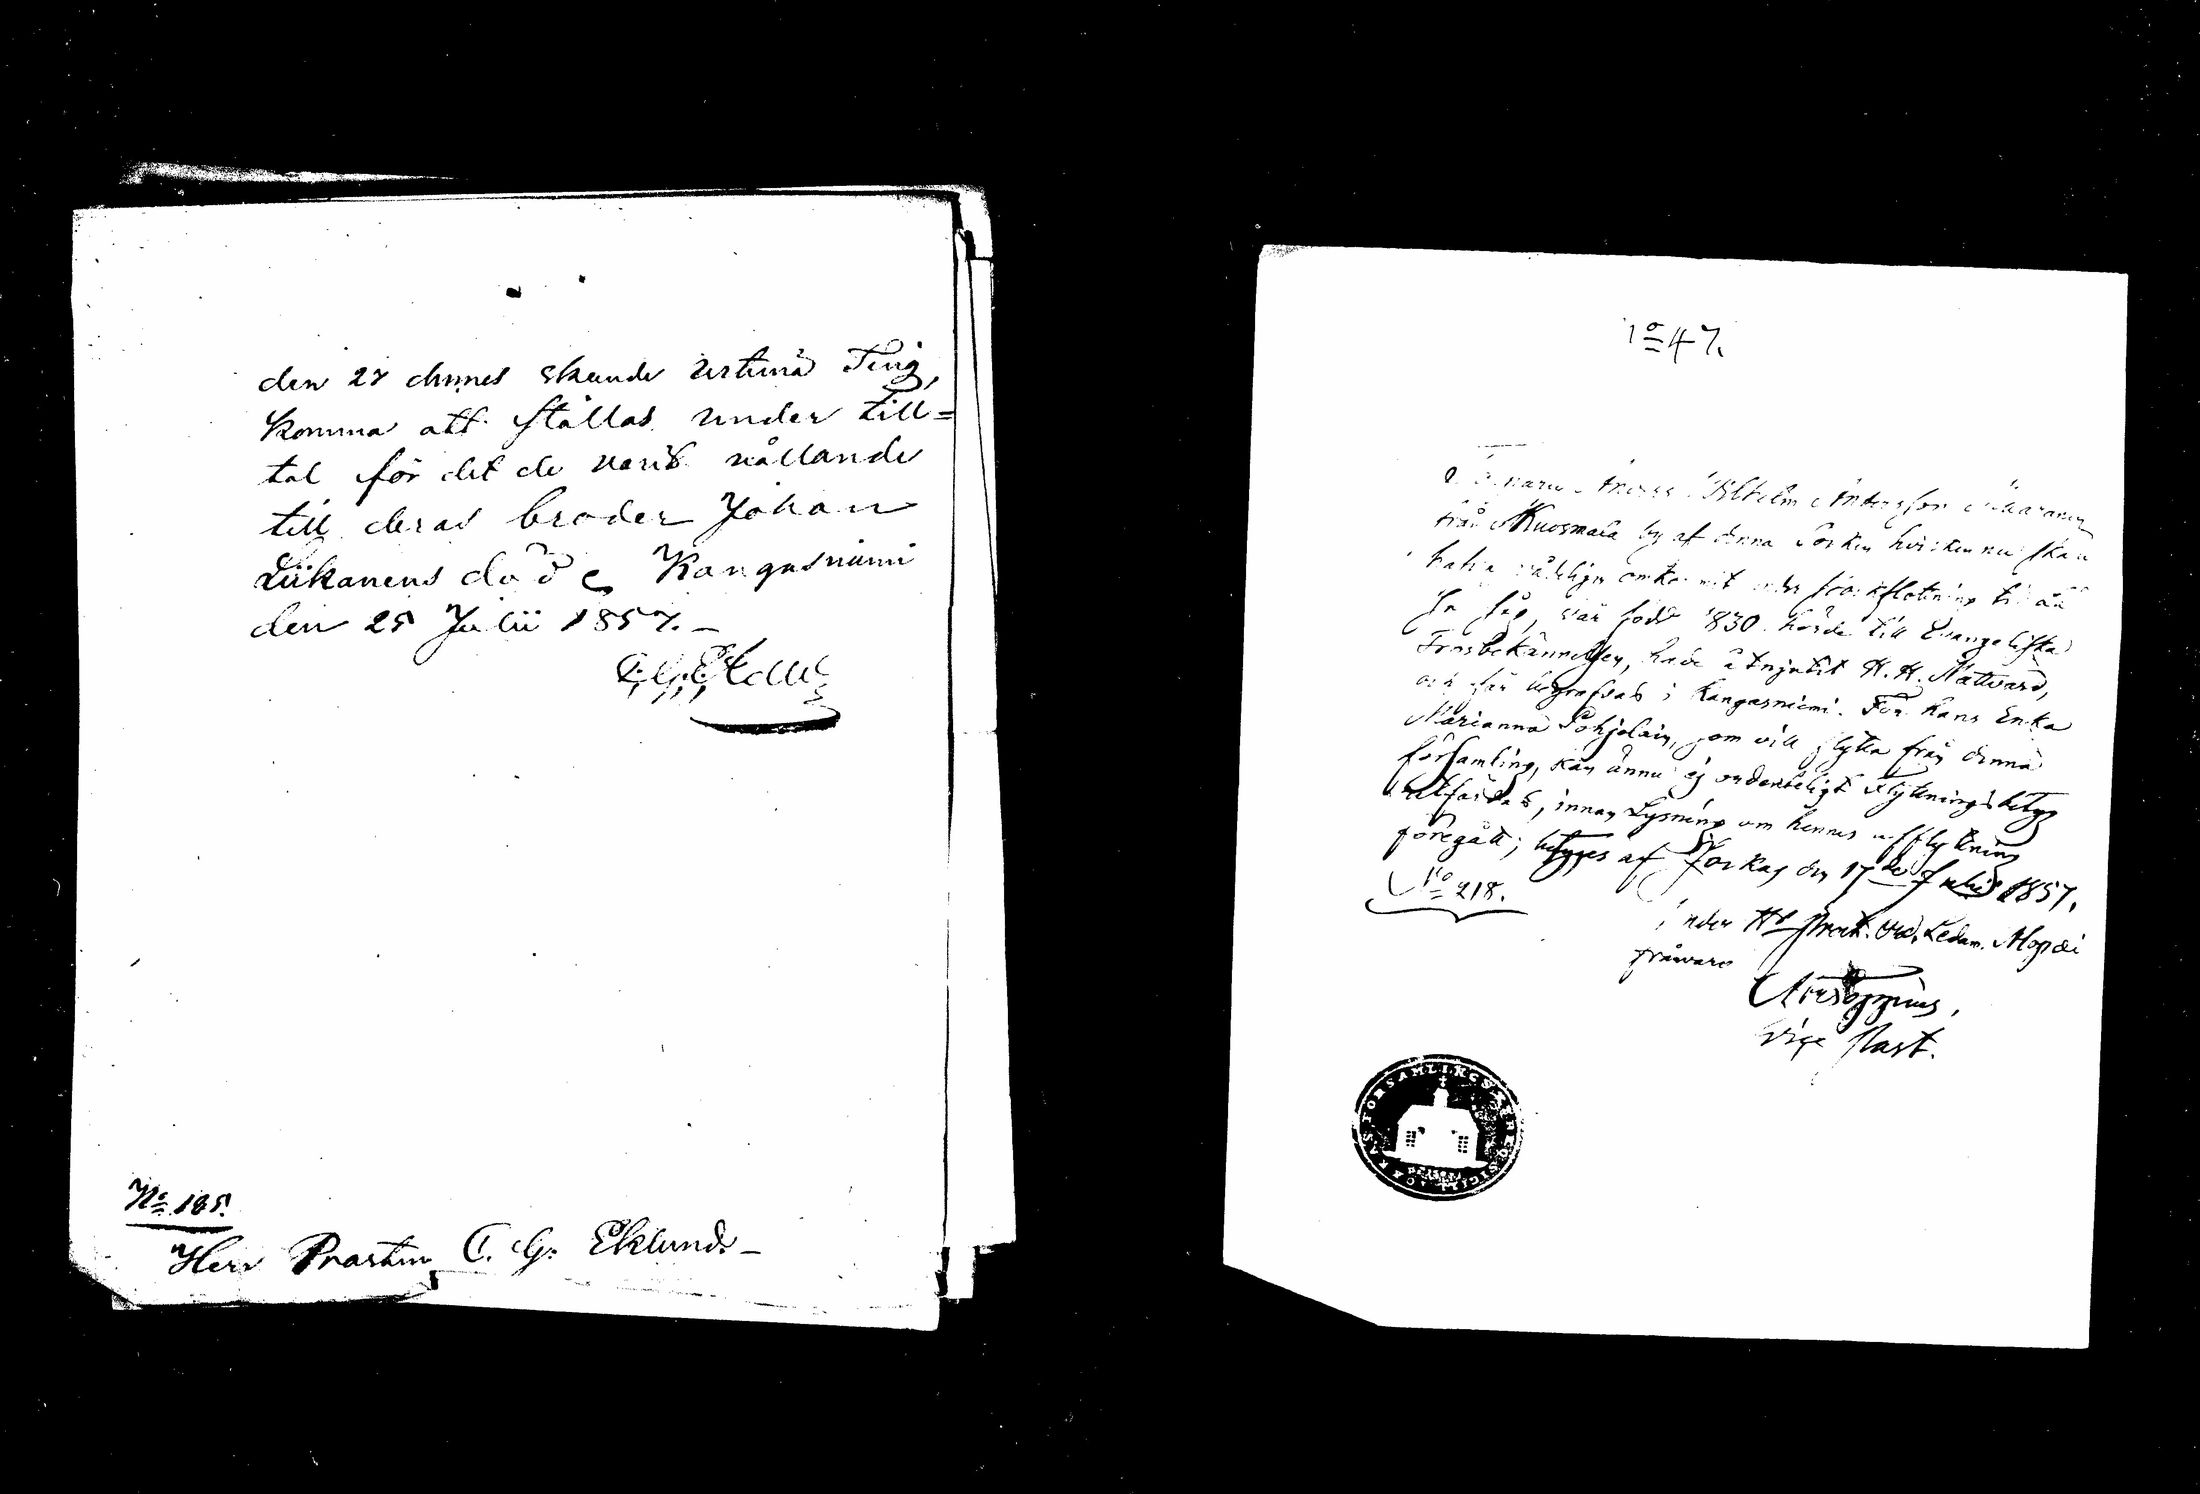 den 28 dennes skeende urtima Ting,
komma att ställas under till=
tal för det de varit vållande
till deras broder Johan
Liikanens död. Kangasniemi
den 25 Julii 1857. –
C. G. Eklund
No 185.
Herr Prosten C. G. Eklund. –
No 47.
Wilhelm Andersson
från Kuosmala by af denna Socken hvilken nu skall
hafva omkommit under stockflottning
var född 1830. hörde till Evangeliska
Trosbekännelsen, hade åtnjutit H. H. Nattvard,
och får begrafvas i Kangasniemi. För hans Enka
Marianna Pohjolain, som vill flytta från denna
församling, kan ännu ej ordenteligt Flyttningsbetyg
utfärdas, innan Lysning om hennes afflyttning
föregått; betyges af Jorkas den 17de Julii 1857.
No 218.
under Hr Prost. och Ledam. Alopæi
frånvaro
Vice Past.